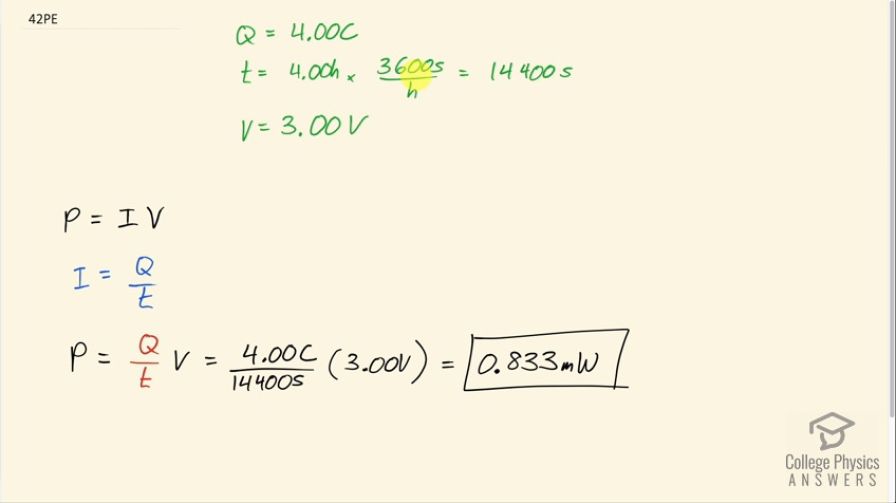 42PE
Q = 4.00C
t = 4.00h × 3600s/h = 14400s
V = 3.00V
P = IV
I = Q/t
P = Q/t V = 4.00C/14400s (3.00V) = 0.833mW
College Physics
ANSWERS